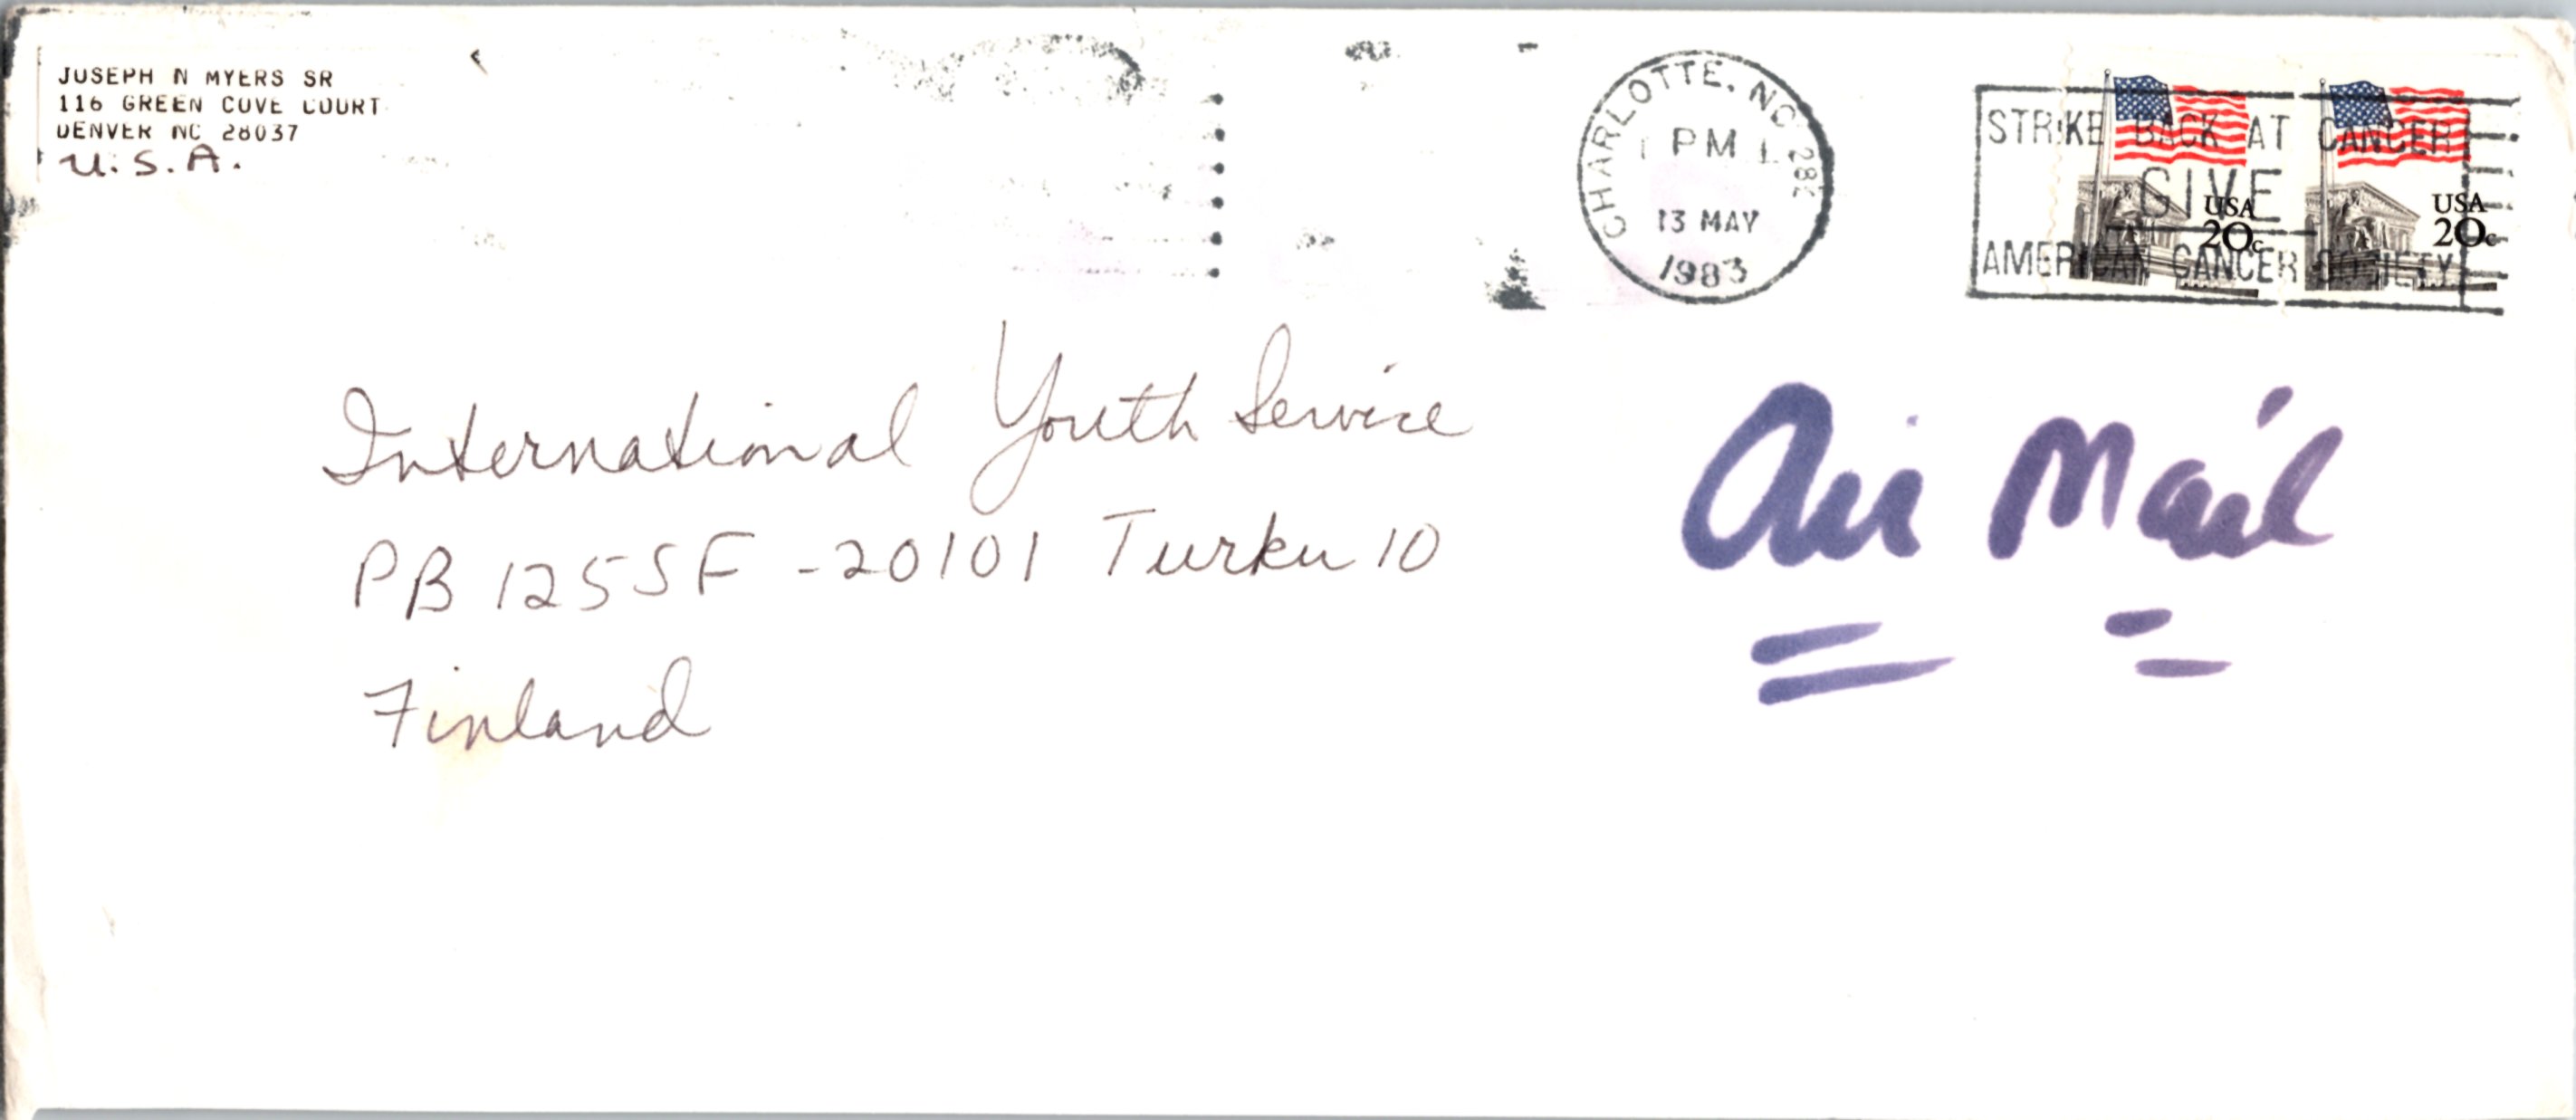 JOSEPH N MYERS SR
116 GREEN COVE COURT
DENVER NC 28037
U.S.A.
CHARLOTTE, NC
PM
13 MAY
1983
STRIKE BACK AT CANCER
GIVE
AMERICAN CANCER SOCIETY
USA
20c
USA
20c
International Youth Service
PB 125 SF -20101 Turku 10
Finland
Air Mail